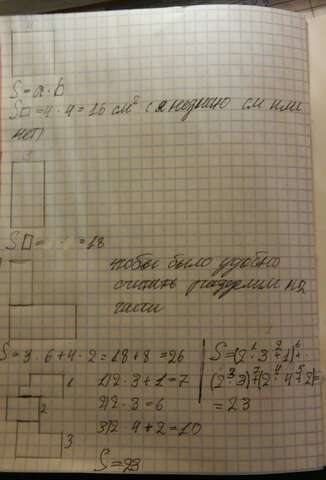 S = a · b
S□ = 4 · 4 = 16 см² ( я незнаю см или
нет)
S□ = = 18
чтобы было удобно
считать разделим на
части
S = 3 · 6 + 4 · 2 = 18 + 8 = 26
1
1) 2 · 3 + 1 = 7
2
2) 2 · 3 = 6
3) 2 · 4 + 2 = 10
3
S = 23
S = (2 · 3 + 1) +
(2 · 3) + (2 · 4 + 2) =
= 23